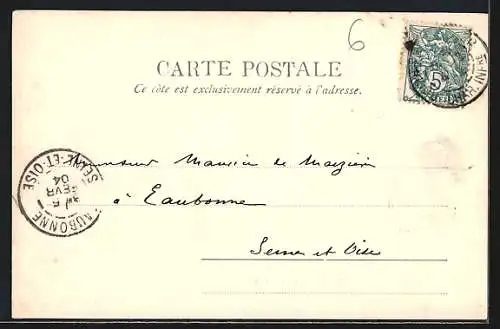 6
CARTE POSTALE
Ce côté est exclusivement réservé à l'adresse.
5
CHAR. INFRE
Monsieur Maurice de
à Eaubonne
Seine et Oise
EAUBONNE
SEINE-ET-OISE
5
FEVR
04